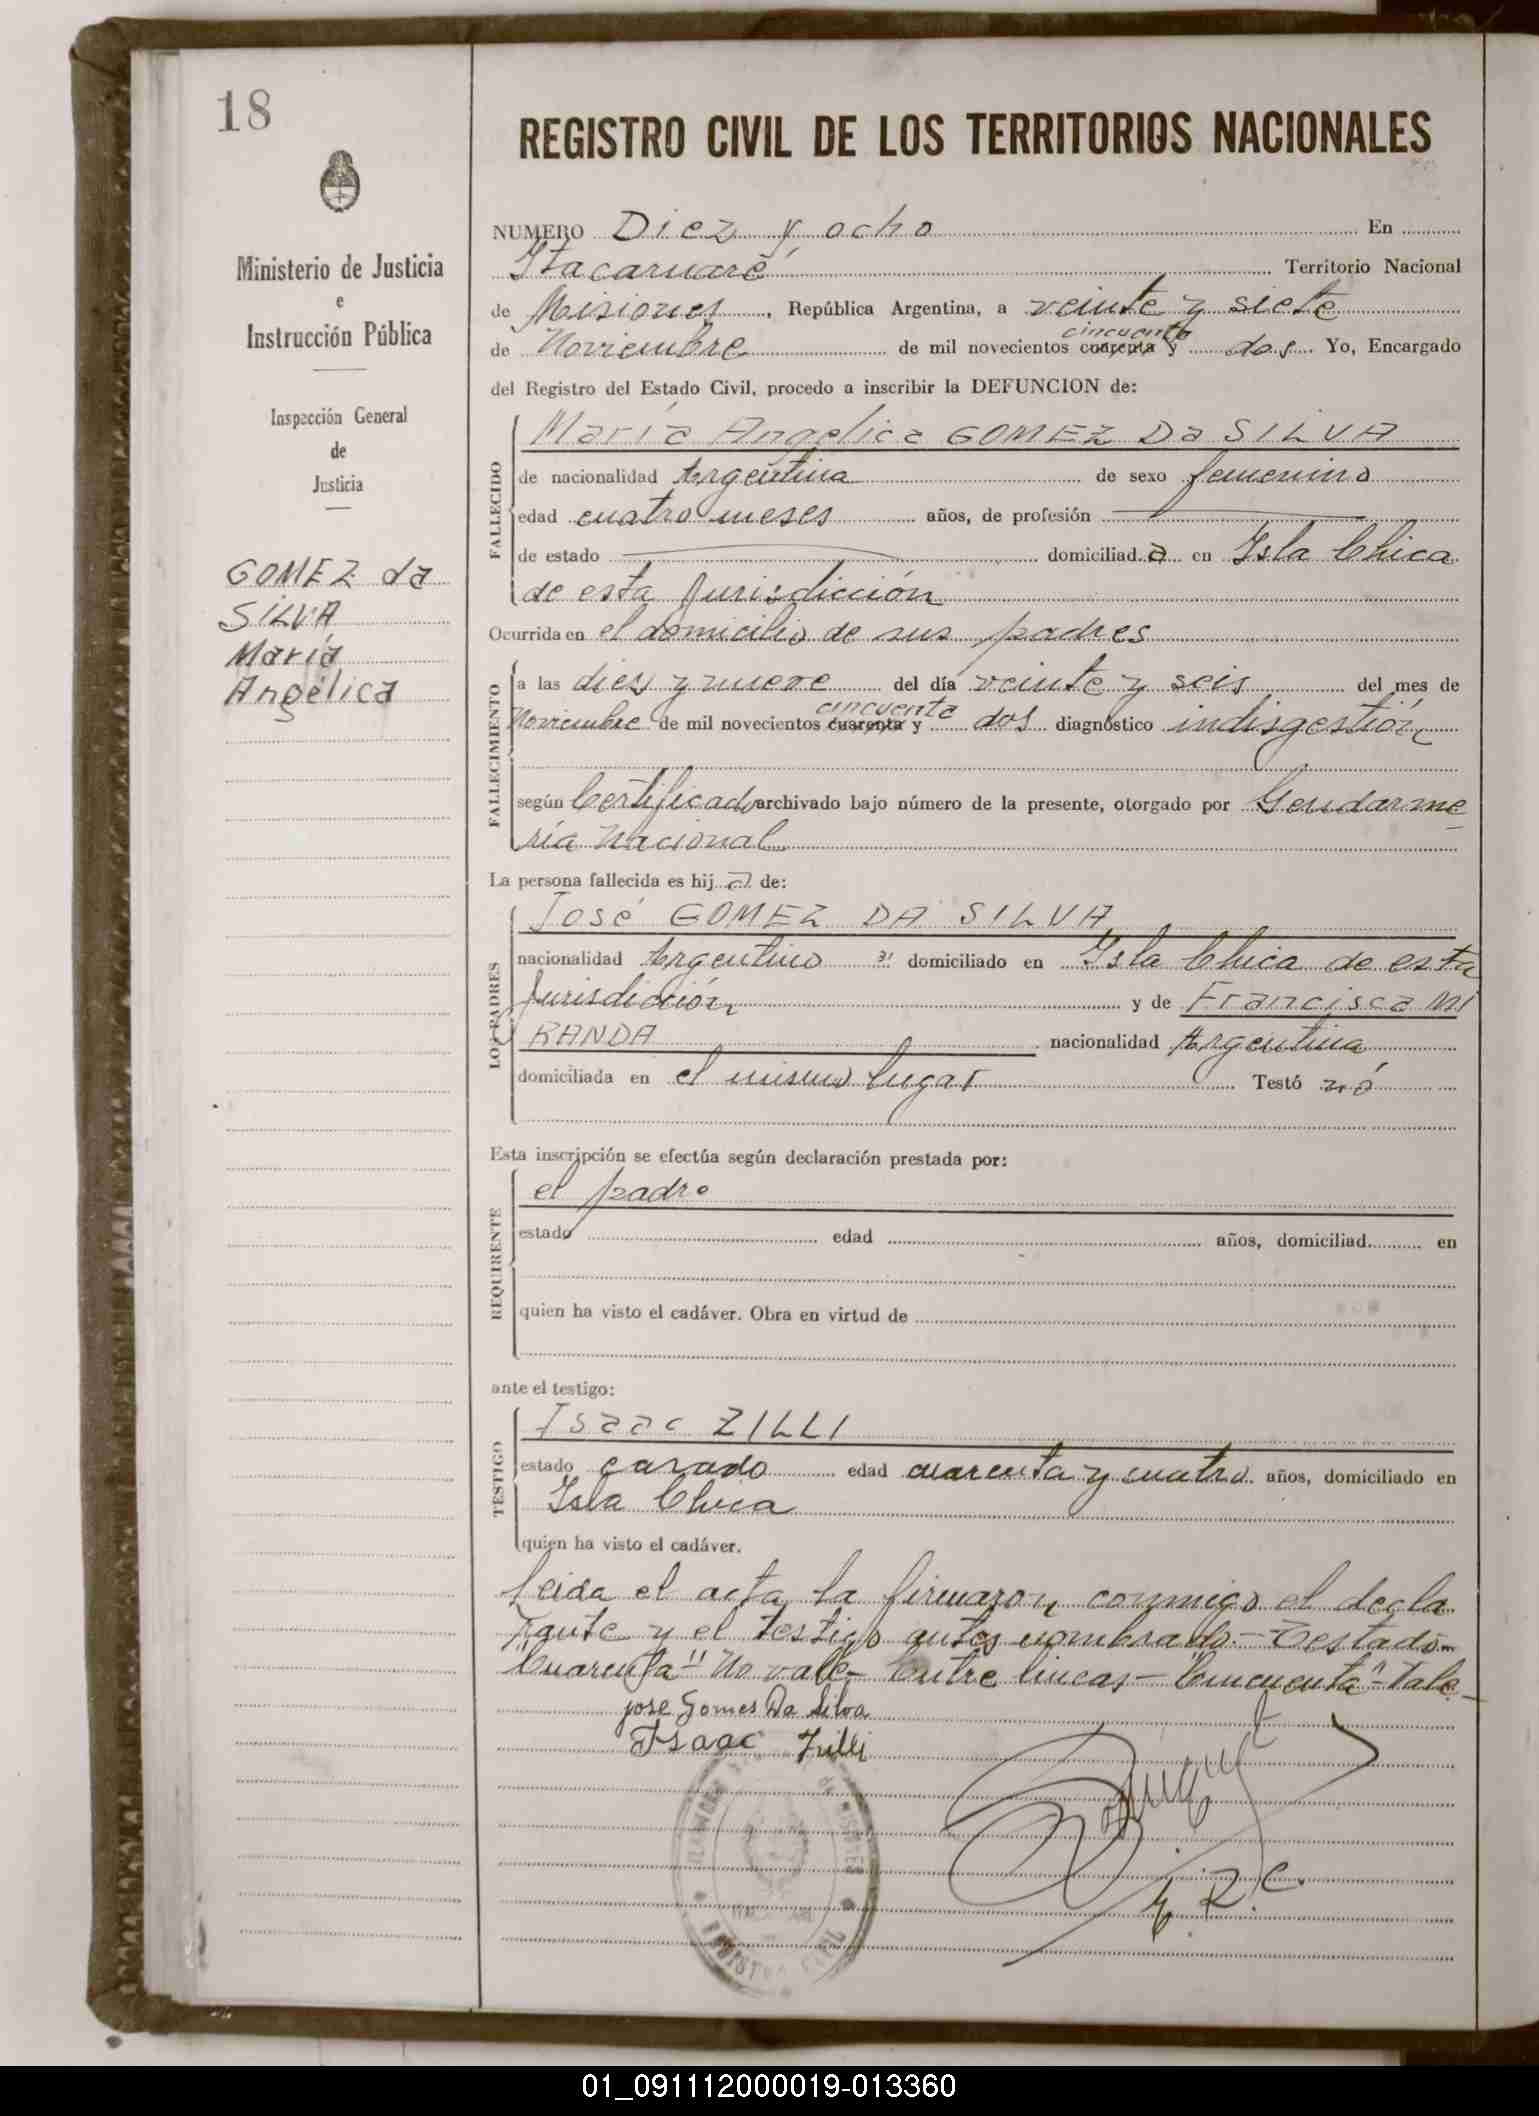 18
REGISTRO CIVIL DE LOS TERRITORIOS NACIONALES
Ministerio de Justicia
e
Instrucción Pública
Inspección General
de
Justicia
GOMEZ da
SILVA
María
Angélica
NUMERO Diez y ocho En
Itacaruaré Territorio Nacional
de Misiones, República Argentina, a veinte y siete
cincuenta
de Noviembre de mil novecientos cuarenta y dos Yo, Encargado
del Registro del Estado Civil, procedo a inscribir la DEFUNCION de:
FALLECIDO
María Angelica GOMEZ Da SILVA
de nacionalidad Argentina de sexo femenino
edad cuatro meses años, de profesión
de estado domiciliada en Isla Chica
de esta Jurisdicción
Ocurrida en el domicilio de sus padres
FALLECIMIENTO
a las dies y nueve del día veinte y seis del mes de
cincuenta
Noviembre de mil novecientos cuarenta y dos diagnóstico indisgestión
según Certificado archivado bajo número de la presente, otorgado por Gendarme
ría Nacional
La persona fallecida es hija de:
LOS PADRES
José GOMEZ DA SILVA
nacionalidad Argentino domiciliado en Isla Chica de esta
Jurisdicción y de Francisca MI
RANDA nacionalidad Argentina
domiciliada en el mismo lugar Testó nó
Esta inscripción se efectúa según declaración prestada por:
REQUIRENTE
el padre
estado edad años, domiciliad en
quien ha visto el cadáver. Obra en virtud de
ante el testigo:
TESTIGO
Isaac ZILLI
estado casado edad cuarenta y cuatro años, domiciliado en
Isla Chica
quien ha visto el cadáver.
Leida el acta la firmaron conmigo el decla
rante y el testigo antes nombrado.- Testado-
"Cuarenta" No vale- Entre lineas- "Cincuenta"- Vale-
jose Gomes Da Silva
Isaac Zilli
E. R. C.
REGISTRO CIVIL
01_091112000019-013360